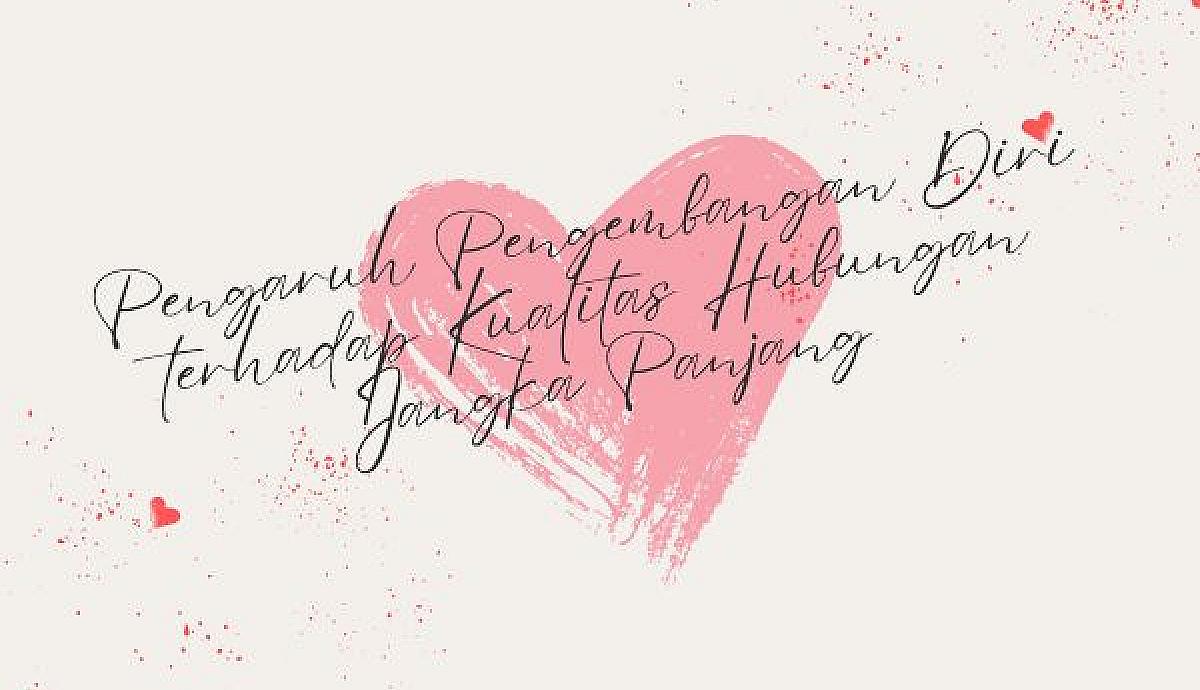 Pengaruh Pengembangan Diri
terhadap Kualitas Hubungan
Jangka Panjang